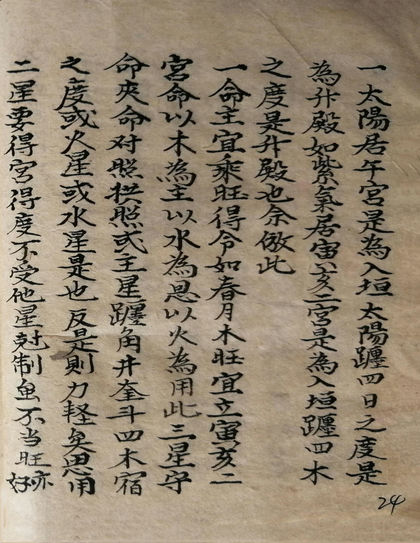 一太陽居午宮是為入垣太陽躔四日之度是
為升殿如紫氣居寅亥二宮是為入垣躔四木
之度是升殿也余倣此
一命主宜乘旺得令如春月木旺宜立寅亥二
宮命以木為主以水為恩以火為用此三星守
命夾命对照拱照或主星躔角井奎斗四木宿
之度或火星或水星是也反是則力軽矣恩用
二星要得宮得度不受他星尅制虽不当旺亦
好
24